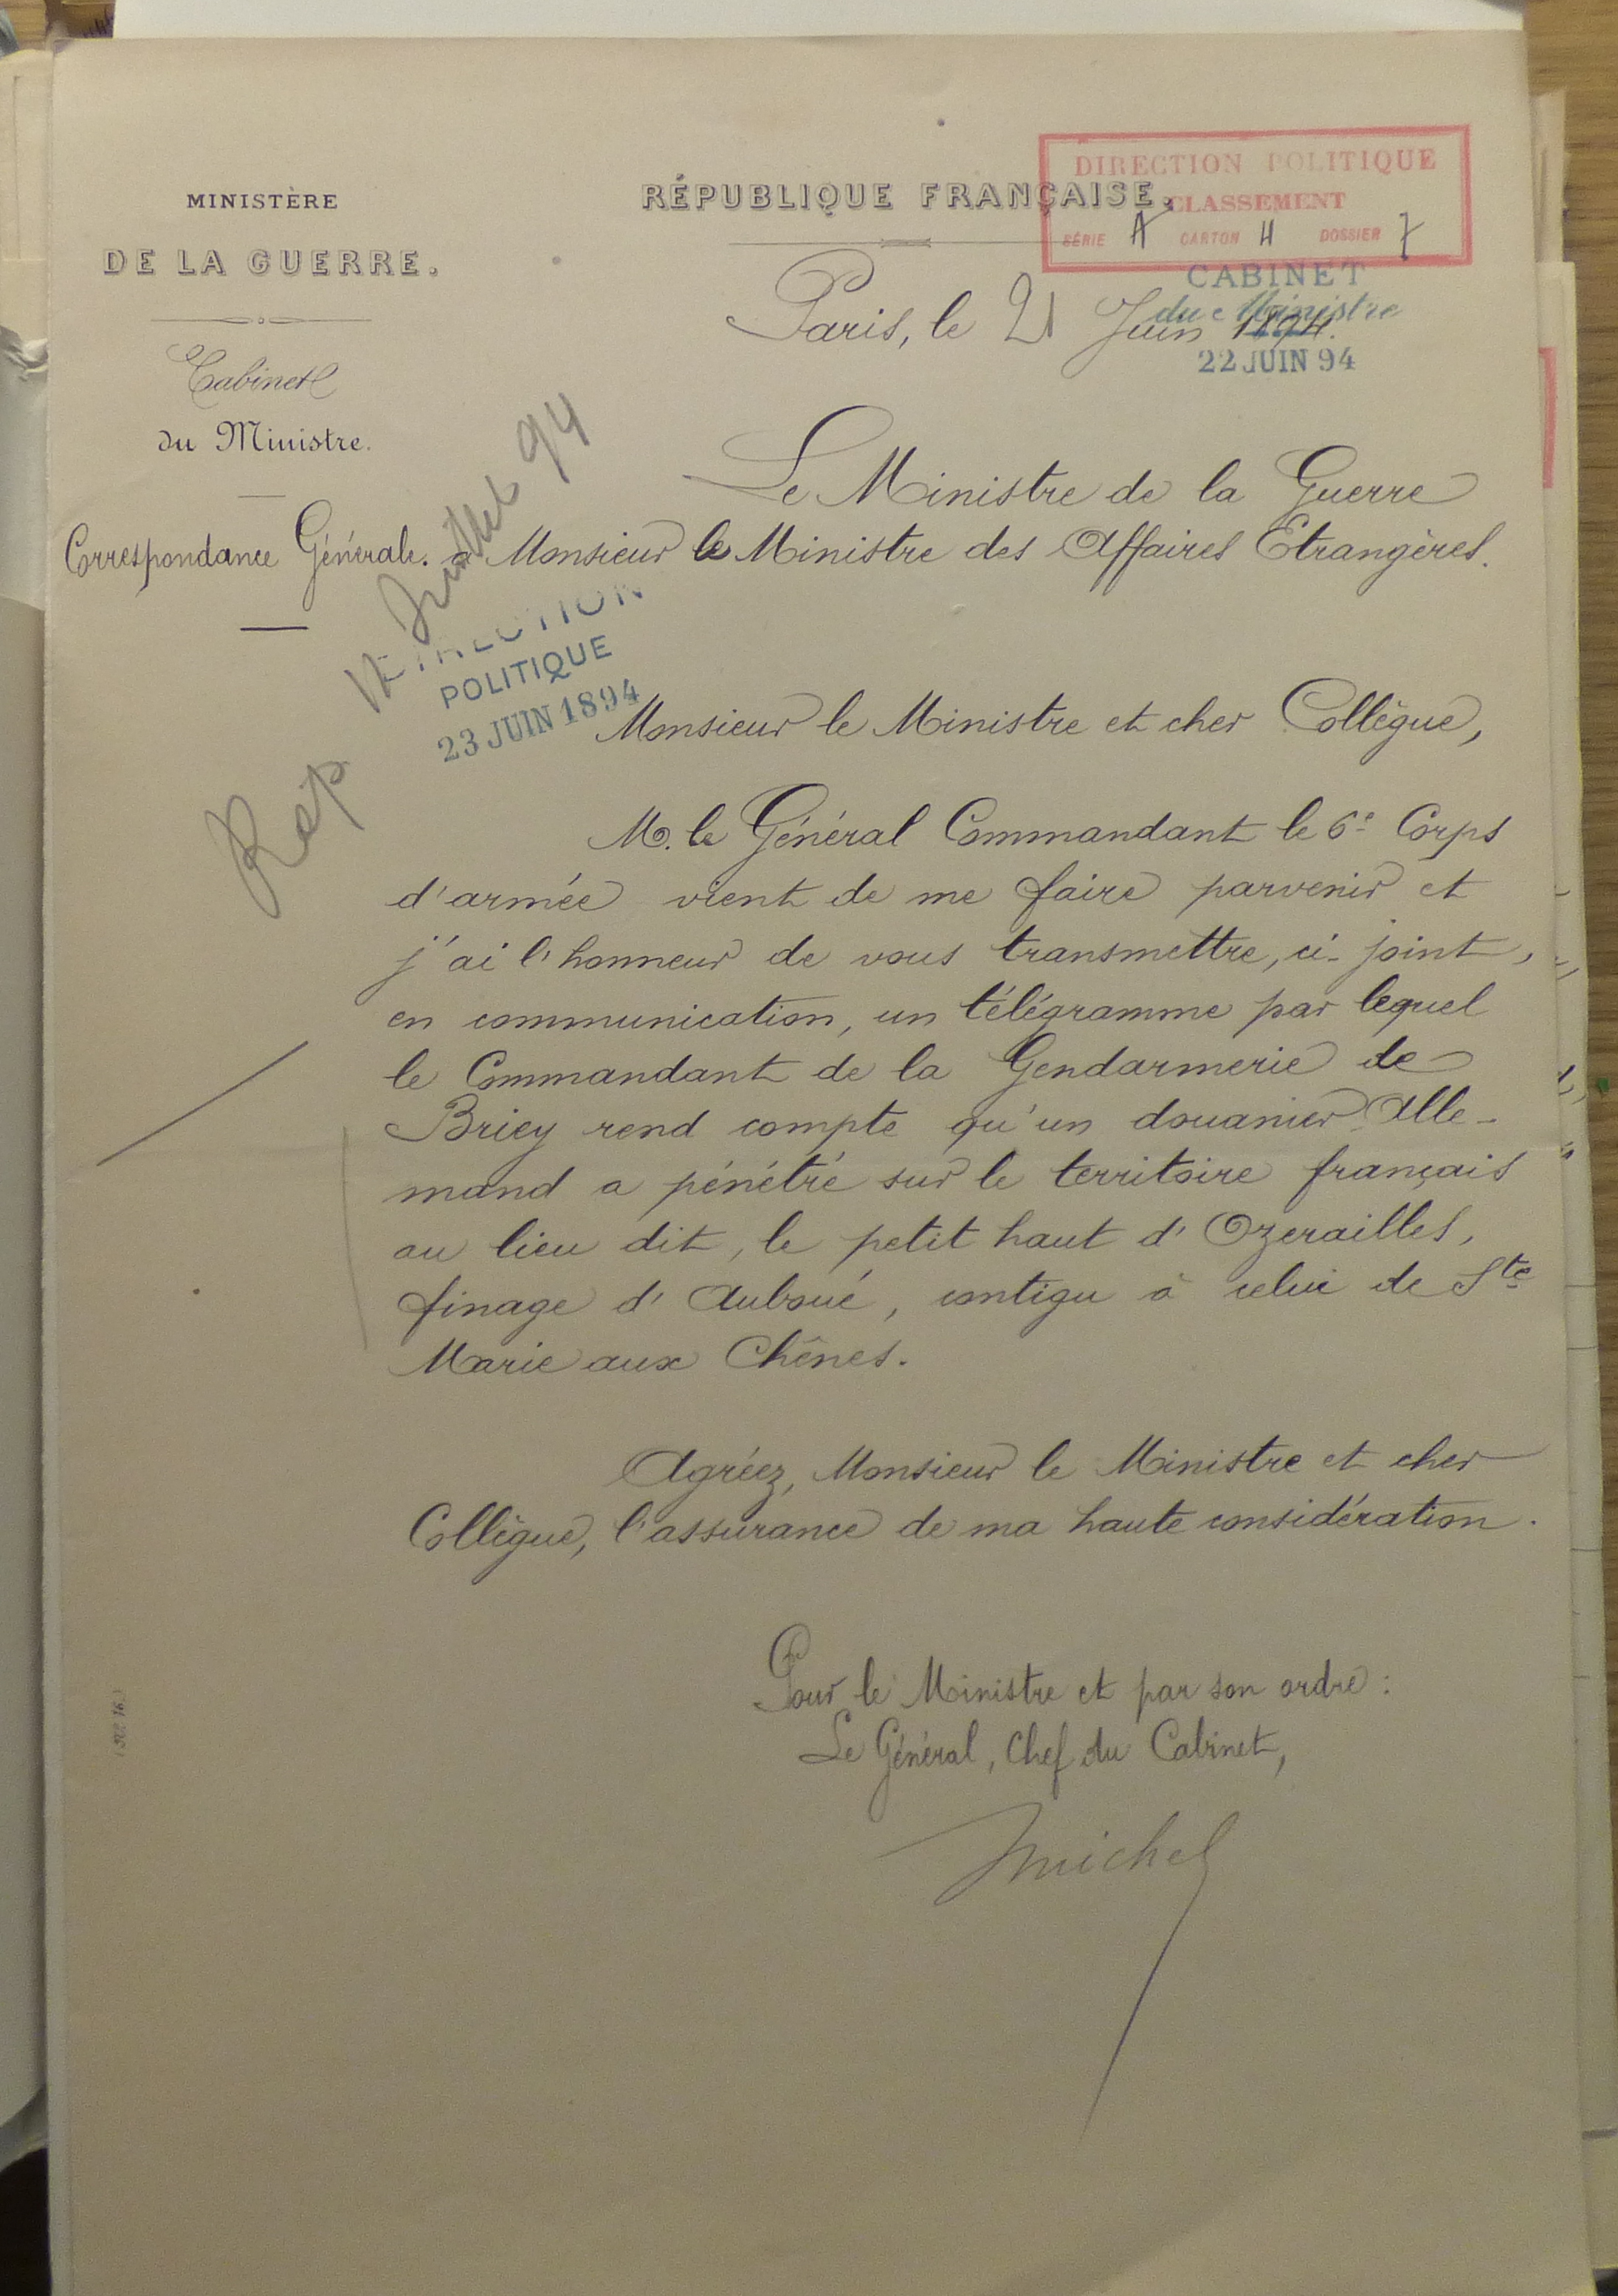 MINISTÈRE
DE LA GUERRE.
Cabinet
du Ministre.
Correspondance Générale.
RÉPUBLIQUE FRANÇAISE.
DIRECTION POLITIQUE
CLASSEMENT
SÉRIE A CARTON 4 DOSSIER 7
CABINET
du Ministre
22 JUIN 94
Paris, le 21 Juin 1894.
Le Ministre de la Guerre
à Monsieur le Ministre des Affaires Etrangères.
Rép Juillet 94
DIRECTION
POLITIQUE
23 JUIN 1894
Monsieur le Ministre et cher Collègue,
M. le Général Commandant le 6e Corps
d'armée vient de me faire parvenir et
j'ai l'honneur de vous transmettre, ci-joint,
en communication, un télégramme par lequel
le Commandant de la Gendarmerie de
Briey rend compte qu'un douanier Alle-
mand a pénétré sur le territoire français
au lieu dit, le petit haut d'Ozerailles,
finage d'Auboué, contigu à celui de Ste
Marie aux Chênes.
Agréez, Monsieur le Ministre et cher
Collègue, l'assurance de ma haute considération.
Pour le Ministre et par son ordre :
Le Général, Chef du Cabinet,
Michel